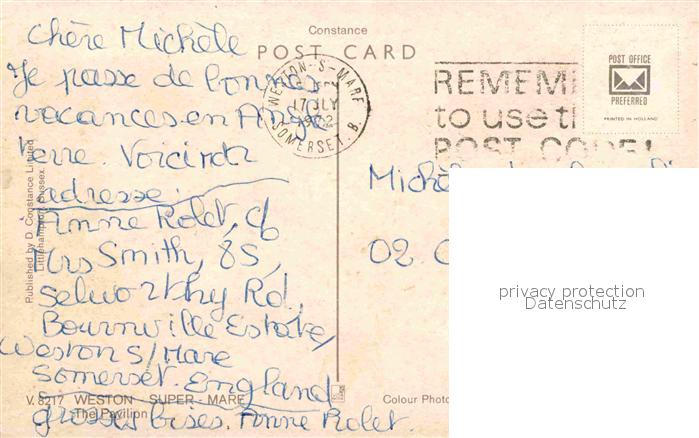 Constance
POST CARD
chère Michèle
Je passe de bonnes
vacances en Angle
terre. Voici mon
adresse:
Anne Rolet, c/o
Mrs Smith, 85,
Selworthy Rd,
Bournville Estate,
Weston S/Mare
Somerset. England
grosses bises. Anne Rolet.
WESTON-S-MARE
17 JLY
SOMERSET. B.
REMEM
to use th
POST CODE!
POST OFFICE
PREFERRED
PRINTED IN HOLLAND
Published by D. Constance Limited
Littlehampton, Sussex.
V. 8217 WESTON - SUPER - MARE
The Pavilion
Colour Pho
02
privacy protection
Datenschutz